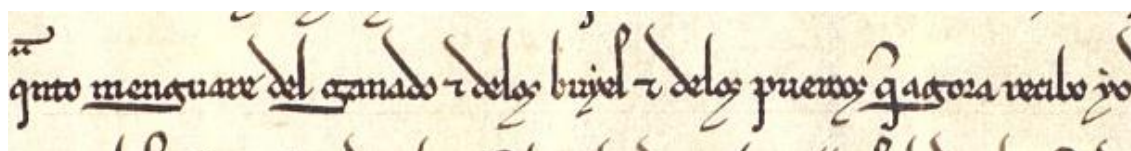 qnto menguare del ganado ⁊ delos buyes ⁊ delos puercos q̃ agora recibo yo